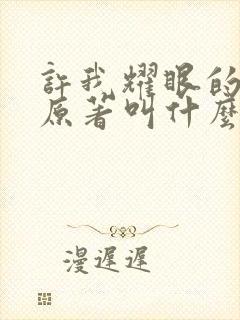 許我耀眼的
原著叫什麼
漫遲遲